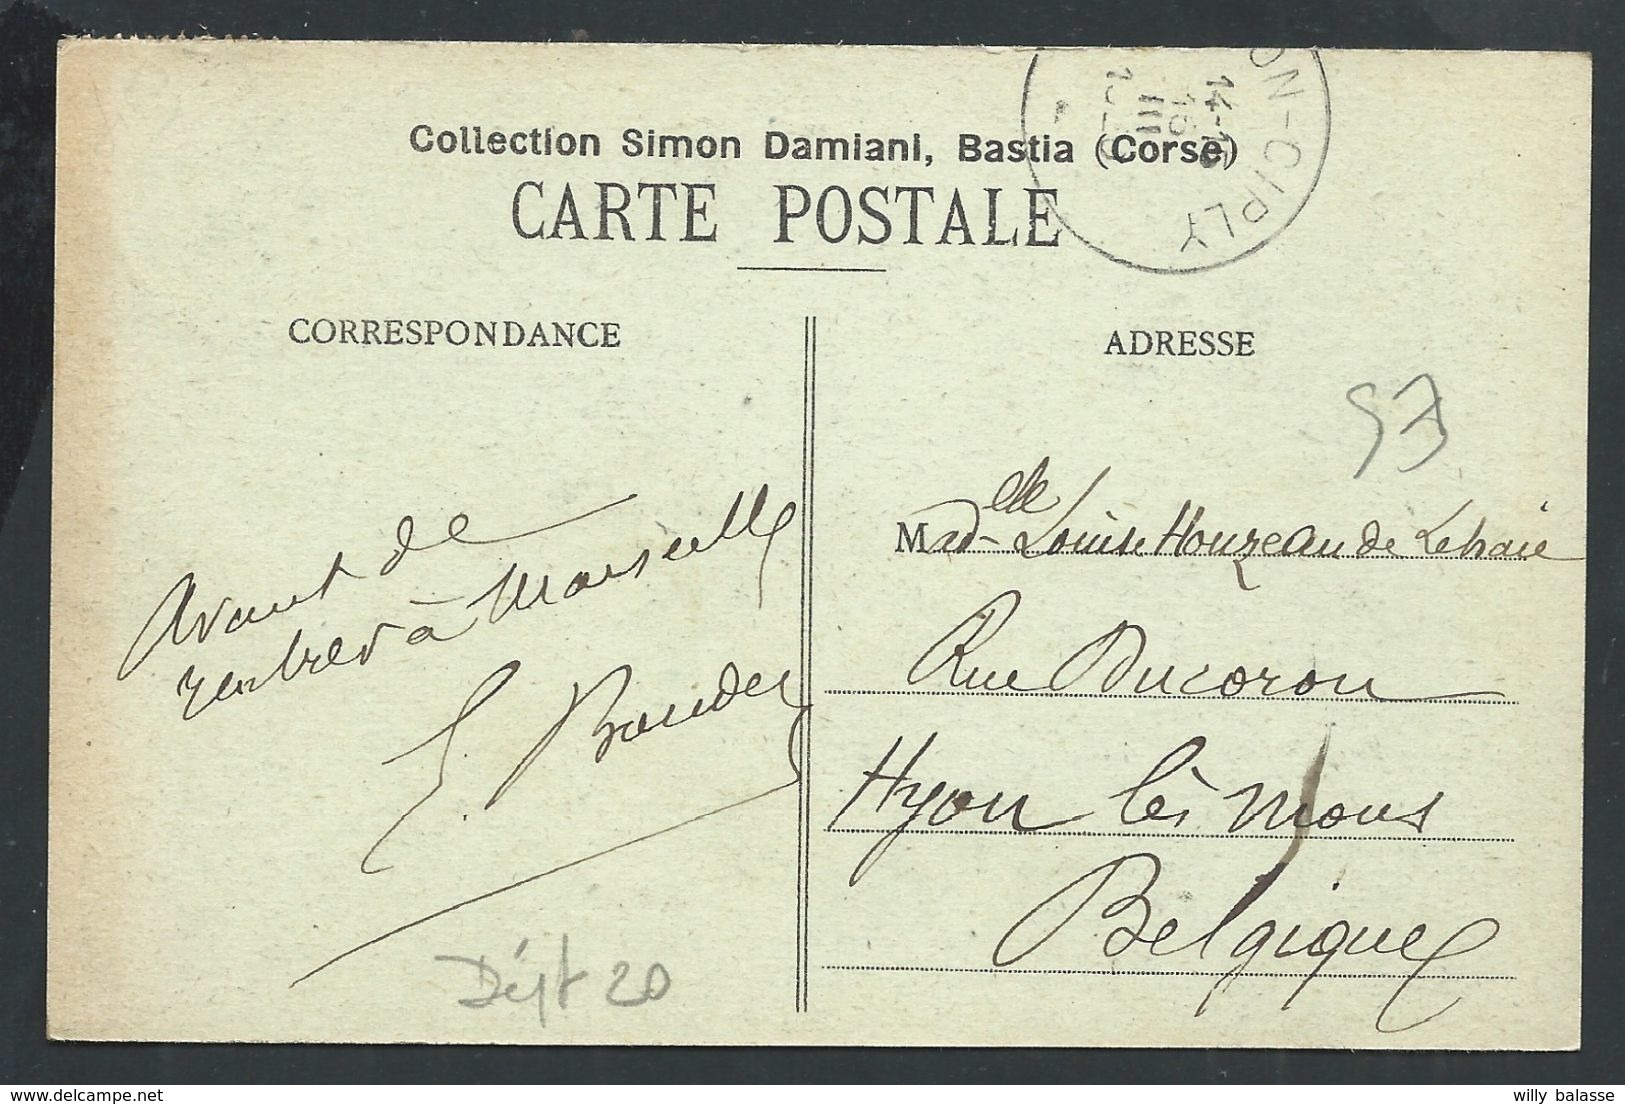 Collection Simon Damiani, Bastia (Corse)
CARTE POSTALE
ON-CIPLY
14-15
16
III
CORRESPONDANCE
ADRESSE
97
Avant de
rentrer à Marseille
Madelle Louise Houzeau de Lehaie
Rue Ducoron
Hyon lès Mons
Belgique
Dépt 20
willy balasse